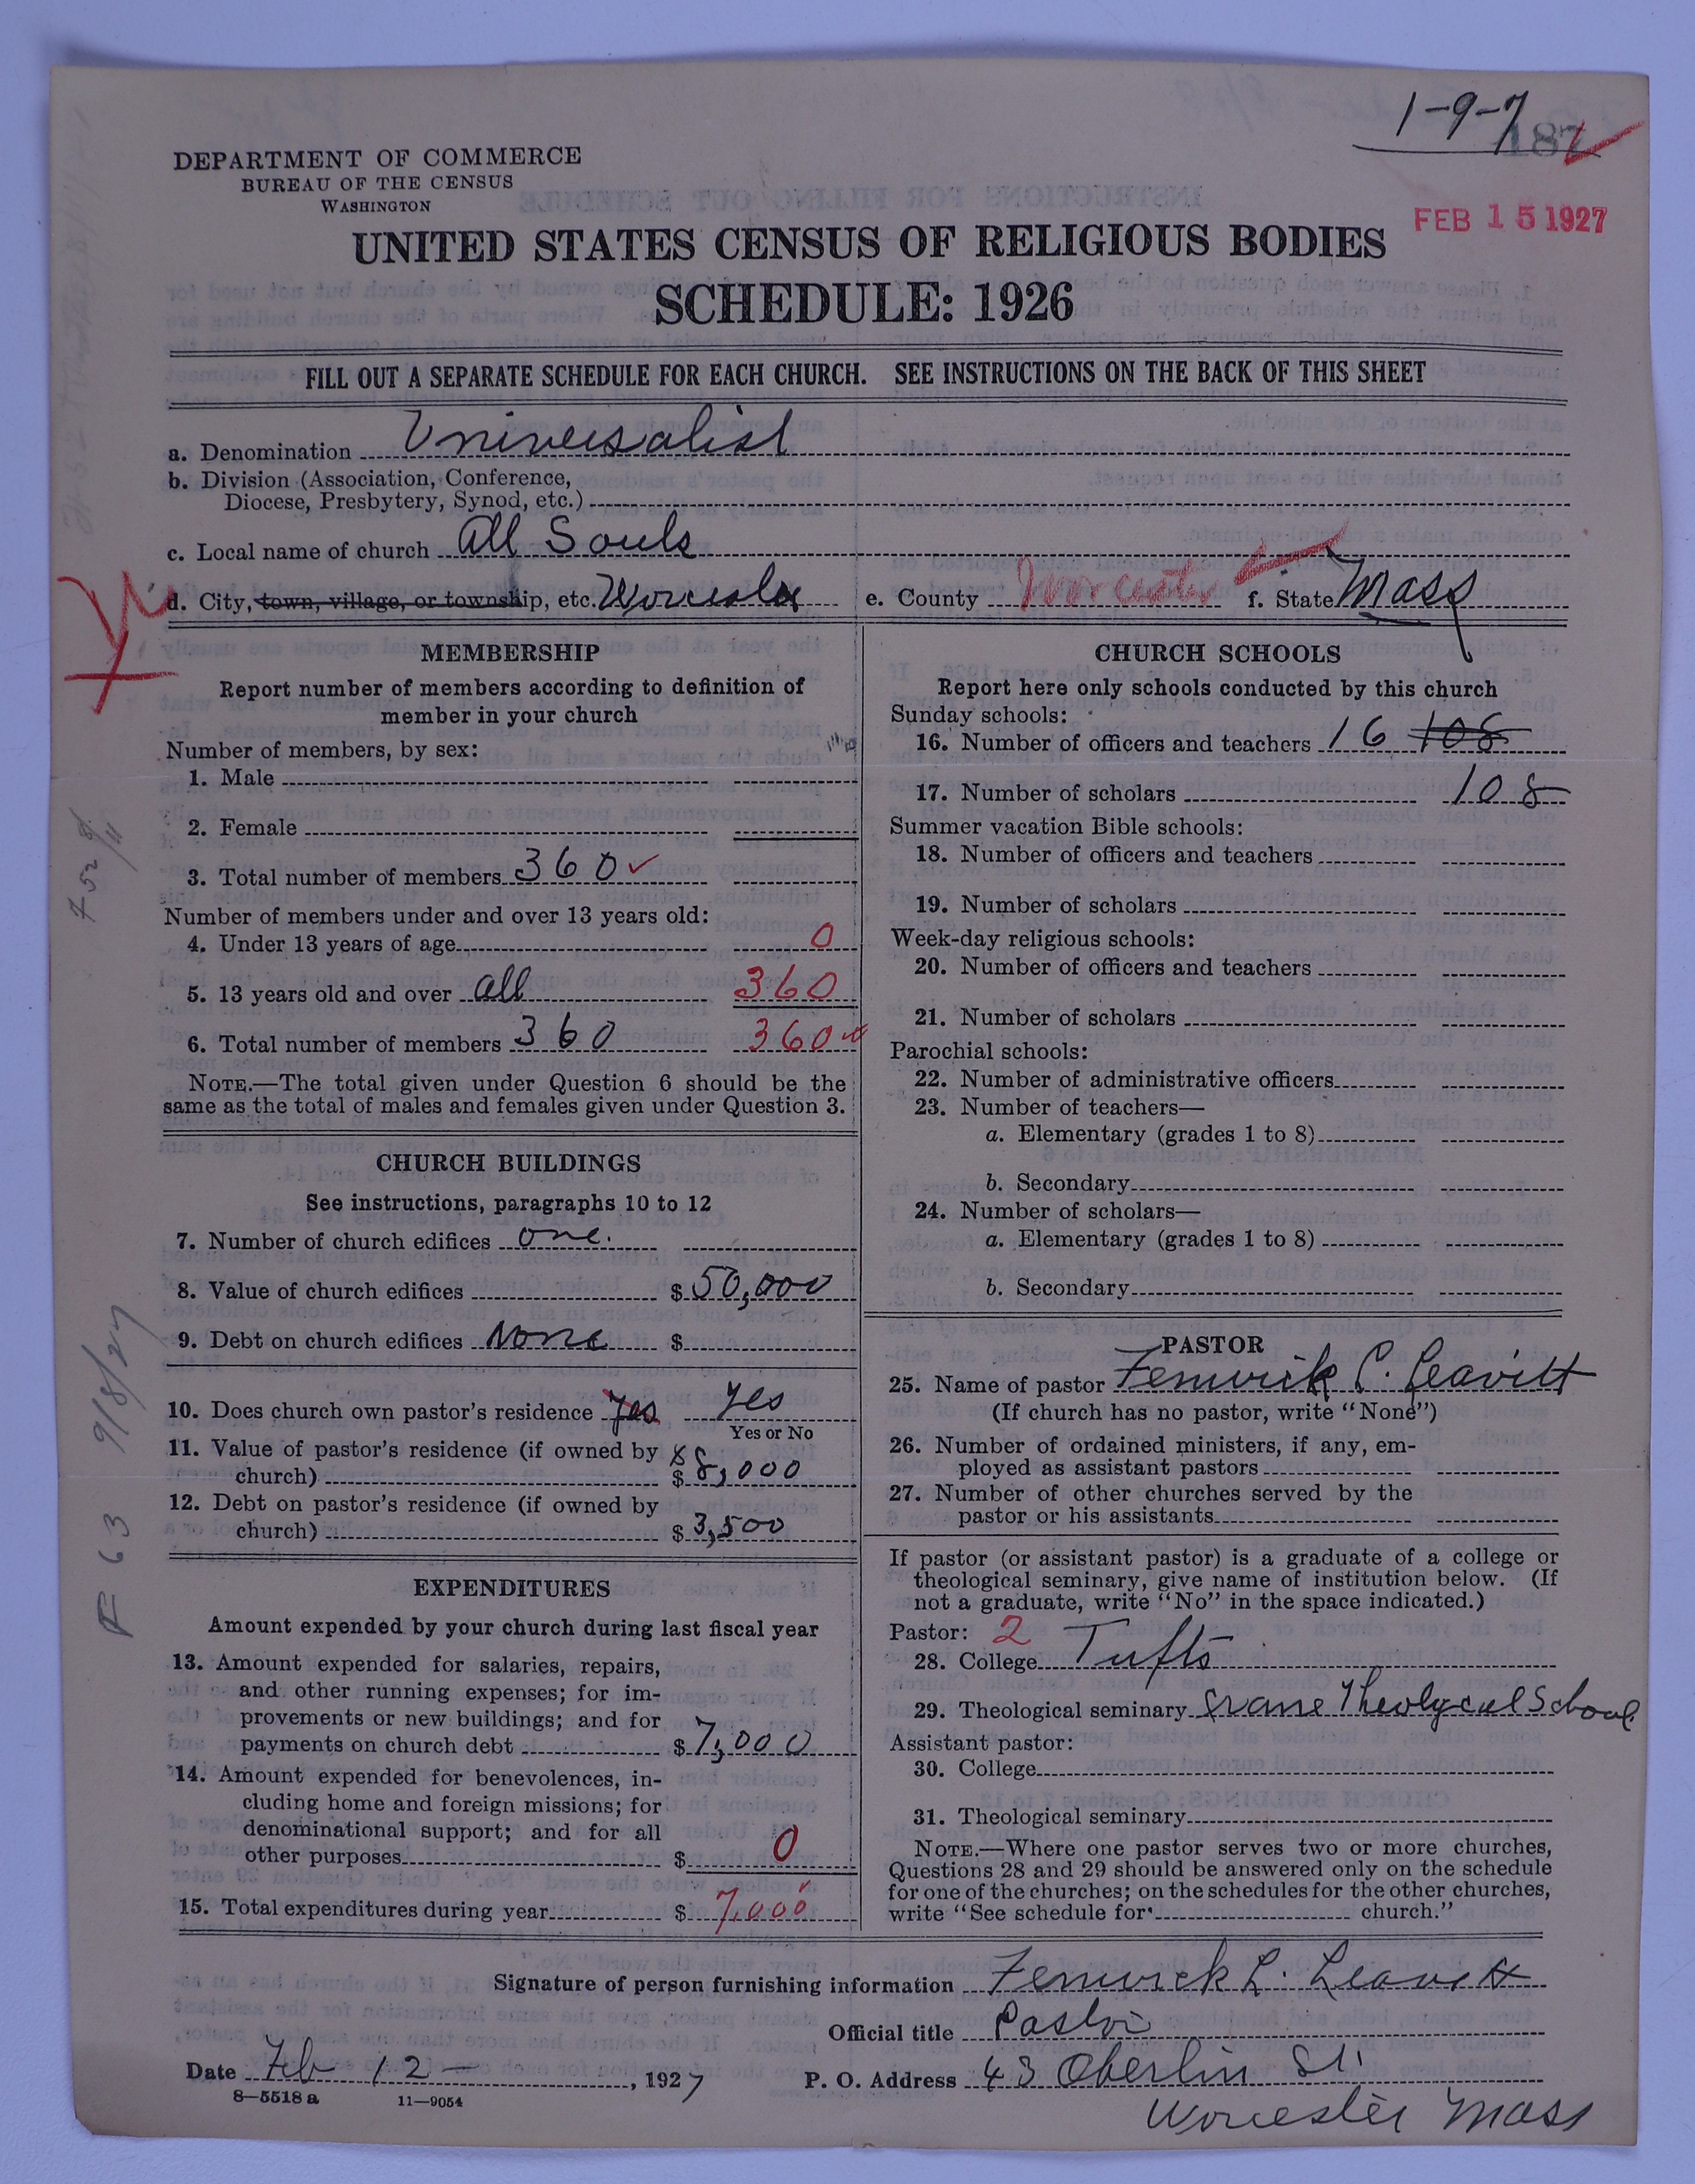 1-9-7
187
DEPARTMENT OF COMMERCE
BUREAU OF THE CENSUS
WASHINGTON
FEB 15 1927
UNITED STATES CENSUS OF RELIGIOUS BODIES
SCHEDULE: 1926
FILL OUT A SEPARATE SCHEDULE FOR EACH CHURCH. SEE INSTRUCTIONS ON THE BACK OF THIS SHEET
a. Denomination Universalist
b. Division (Association, Conference,
Diocese, Presbytery, Synod, etc.)
c. Local name of church All Souls
d. City, town, village, or township, etc. Worcester e. County Worcester f. State Mass
MEMBERSHIP
Report number of members according to definition of
member in your church
Number of members, by sex:
1. Male
2. Female
3. Total number of members 360
Number of members under and over 13 years old:
4. Under 13 years of age 0
5. 13 years old and over all 360
6. Total number of members 360 360
NOTE.—The total given under Question 6 should be the
same as the total of males and females given under Question 3.
CHURCH BUILDINGS
See instructions, paragraphs 10 to 12
7. Number of church edifices one.
8. Value of church edifices $ 50,000
9. Debt on church edifices None $
10. Does church own pastor's residence Yes Yes
Yes or No
11. Value of pastor's residence (if owned by
church) $ 8,000
12. Debt on pastor's residence (if owned by
church) $ 3,500
EXPENDITURES
Amount expended by your church during last fiscal year
13. Amount expended for salaries, repairs,
and other running expenses; for im-
provements or new buildings; and for
payments on church debt $ 7,000
14. Amount expended for benevolences, in-
cluding home and foreign missions; for
denominational support; and for all
other purposes $ 0
15. Total expenditures during year $ 7,000
CHURCH SCHOOLS
Report here only schools conducted by this church
Sunday schools:
16. Number of officers and teachers 16 108
17. Number of scholars 108
Summer vacation Bible schools:
18. Number of officers and teachers
19. Number of scholars
Week-day religious schools:
20. Number of officers and teachers
21. Number of scholars
Parochial schools:
22. Number of administrative officers
23. Number of teachers—
a. Elementary (grades 1 to 8)
b. Secondary
24. Number of scholars—
a. Elementary (grades 1 to 8)
b. Secondary
PASTOR
25. Name of pastor Fenwick L. Leavitt
(If church has no pastor, write "None")
26. Number of ordained ministers, if any, em-
ployed as assistant pastors
27. Number of other churches served by the
pastor or his assistants
If pastor (or assistant pastor) is a graduate of a college or
theological seminary, give name of institution below. (If
not a graduate, write "No" in the space indicated.)
Pastor: 2
28. College Tufts
29. Theological seminary Crane Theological School
Assistant pastor:
30. College
31. Theological seminary
NOTE.—Where one pastor serves two or more churches,
Questions 28 and 29 should be answered only on the schedule
for one of the churches; on the schedules for the other churches,
write "See schedule for church."
Signature of person furnishing information Fenwick L. Leavitt
Official title Pastor
Date Feb 12 —, 1927 P. O. Address 43 Oberlin St.
8—5518 a 11—9054
Worcester Mass
F 63 9/8/27